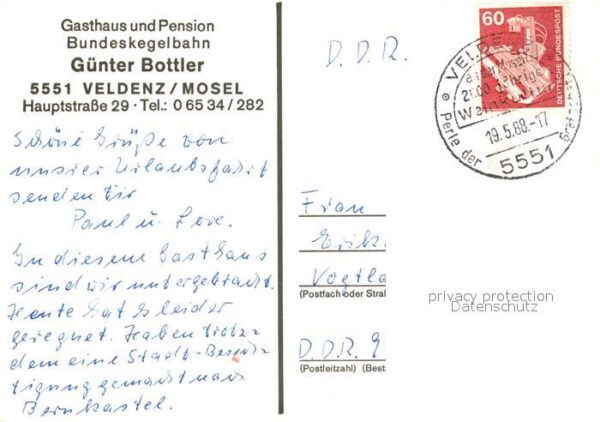 Gasthaus und Pension
Bundeskegelbahn
Günter Bottler
5551 VELDENZ/MOSEL
Hauptstraße 29 · Tel.: 0 65 34 / 282
Schöne Grüße von
unsrer Urlaubsfahrt
senden Dir
Paul u. Lore.
In diesem Gasthaus
sind wir untergebracht.
Heute hat es leider
geregnet. Haben trotz-
dem eine Stadt-Besich-
tigung gemacht nach
Bernkastel.
D. D. R.
60
DEUTSCHE BUNDESPOST
VELDENZ
a. d. Mosel
2000
19.5.88.-17
Perle der
5551
Frau
Erik
Vogtla
(Postfach oder Straß
privacy protection
Datenschutz
D.D.R. 9
(Postleitzahl) (Best